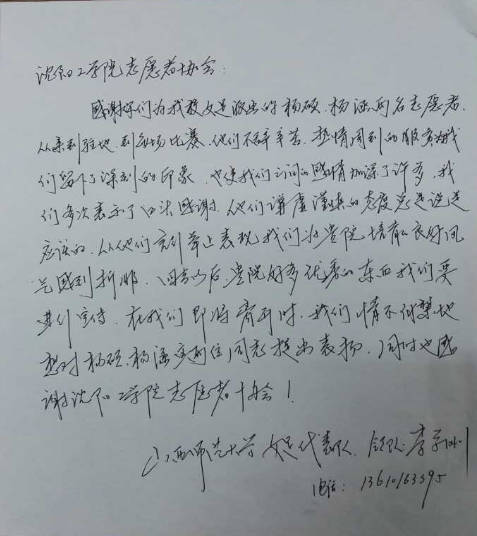 沈阳工学院志愿者协会:
感谢你们为我校女足派出的杨硕、杨涵两名志愿者,
从来到驻地到每场比赛,他们不辞辛苦,热情周到的服务为我
们留下了深刻的印象,也使我们之间的感情加深了许多,我
们多次表示了口头感谢,他们谦虚谨慎的态度总是说是
应该的,从他们言行举止表现我们为贵院培育的良好风
气感到折服,回去以后贵院好多优秀的东西我们要
进行宣传,在我们即将离开时,我们情不自禁地
想对杨硕、杨涵两位同志提出表扬,同时也感
谢沈阳工学院志愿者协会!
山西师范大学女足代表队 领队:李
电话:13610163395